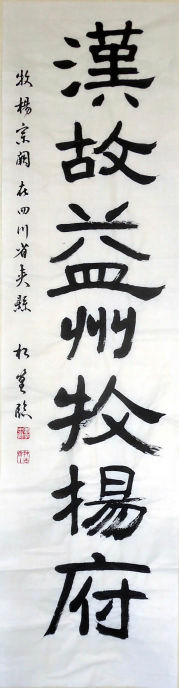 漢故益州牧楊府
牧楊宗闕在四川省夹縣
臨